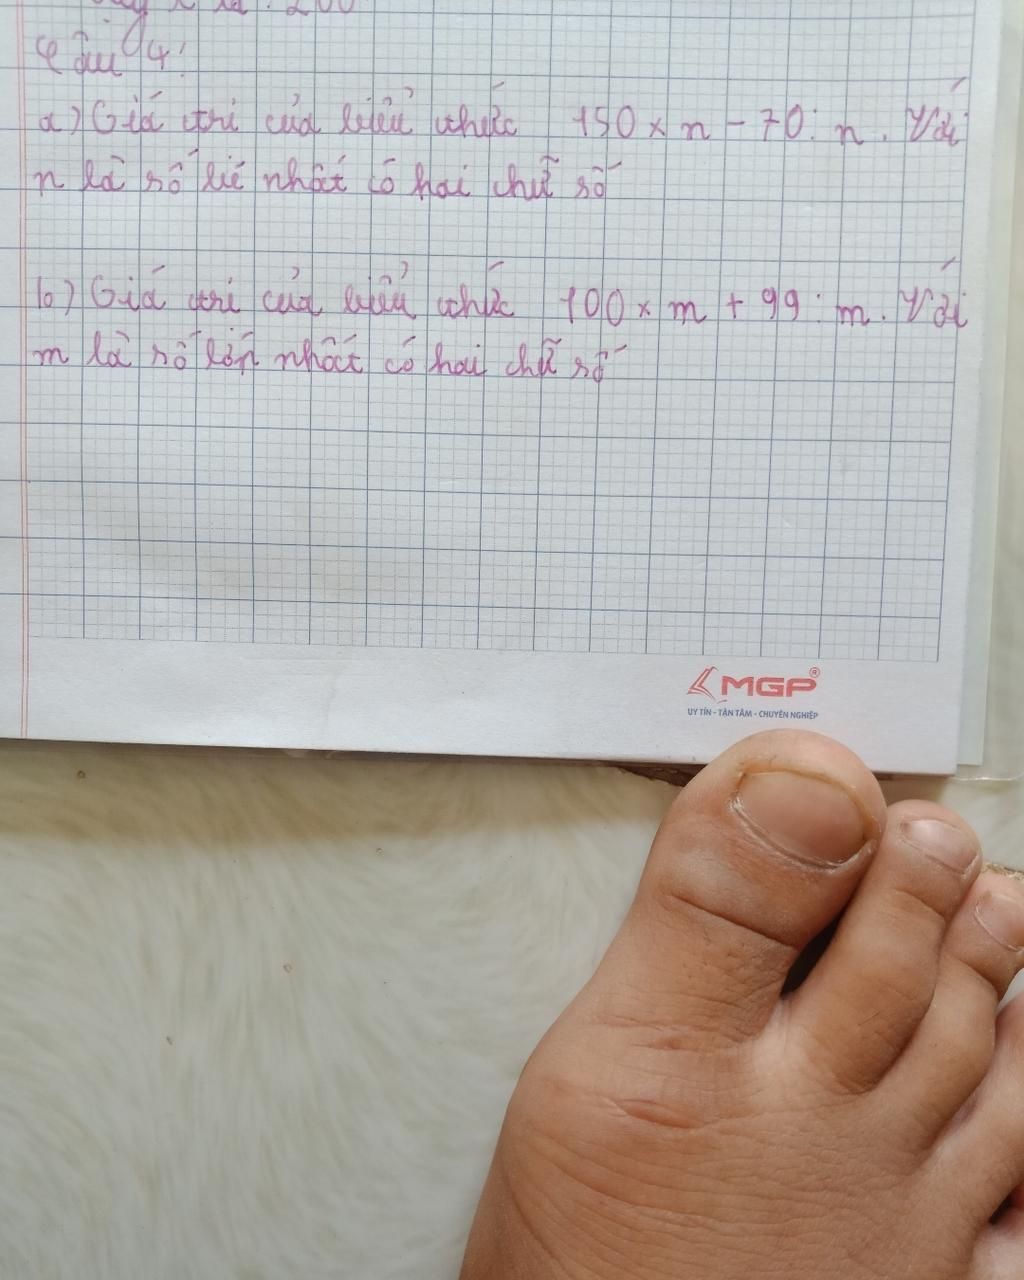 là: 200
Câu 4:
a) Giá trị của biểu thức 150 x n - 70 : n. Với
n là số bé nhất có hai chữ số
b) Giá trị của biểu thức 100 x m + 99 : m. Với
m là số lớn nhất có hai chữ số
MGP®
UY TÍN - TẬN TÂM - CHUYÊN NGHIỆP